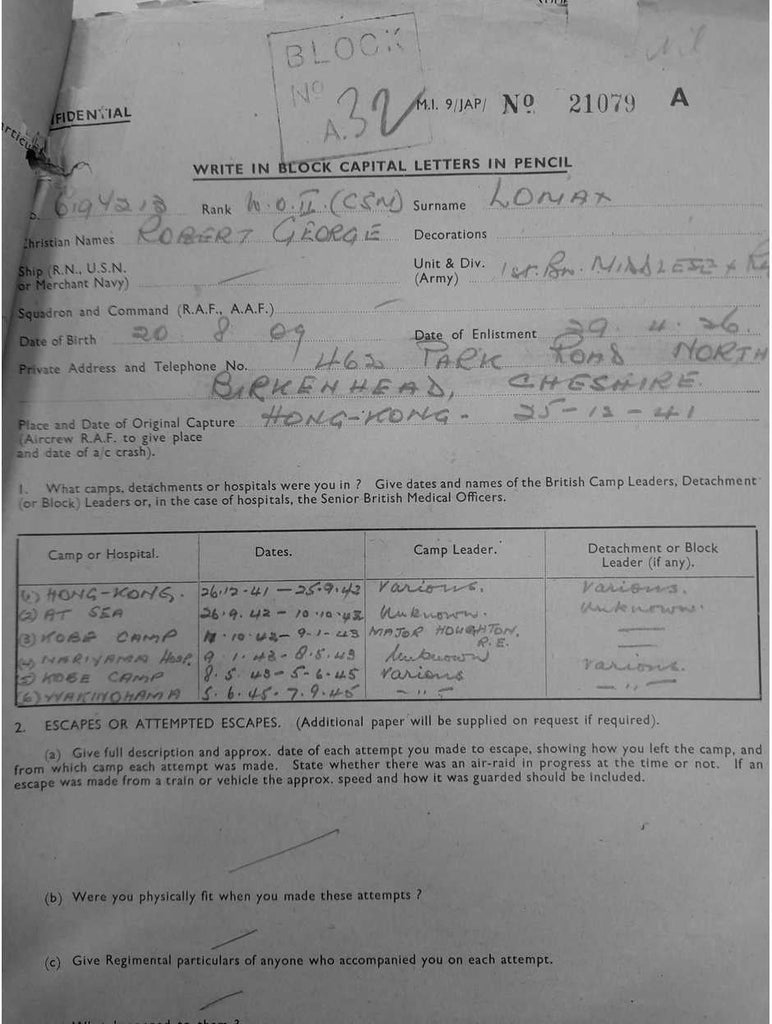 BLOCK
No
A.32
M.I. 9/JAP/ No 21079 A
FIDENTIAL
WRITE IN BLOCK CAPITAL LETTERS IN PENCIL
6194213 Rank W.O.II.(CSM) Surname LOMAX
Christian Names ROBERT GEORGE Decorations
Ship (R.N., U.S.N. or Merchant Navy)
Unit & Div. (Army) 1st. Bn. MIDDLESEX
Squadron and Command (R.A.F., A.A.F.)
Date of Birth 20 8 09 Date of Enlistment 29. 4. 26.
Private Address and Telephone No. 462 PARK ROAD NORTH
BIRKENHEAD, CHESHIRE.
Place and Date of Original Capture HONG-KONG - 25-12-41
(Aircrew R.A.F. to give place
and date of a/c crash).
1. What camps, detachments or hospitals were you in ? Give dates and names of the British Camp Leaders, Detachment
(or Block) Leaders or, in the case of hospitals, the Senior British Medical Officers.
Camp or Hospital. Dates. Camp Leader. Detachment or Block Leader (if any).
(1) HONG-KONG. 26.12.41 - 25.9.42 Various. Various.
(2) AT SEA 26.9.42 - 10.10.42 Unknown. Unknown.
(3) KOBE CAMP 11.10.42 - 9-1-43 MAJOR HOUGHTON, R.E.
(4) MARIYAMA Hosp. 9.1.43 - 8.5.43 Unknown
(5) KOBE CAMP 8.5.43 - 5-6.45 Various Various.
(6) WAKINOHAMA 5.6.45 - 7.9.45 - " - - " -
2. ESCAPES OR ATTEMPTED ESCAPES. (Additional paper will be supplied on request if required).
(a) Give full description and approx. date of each attempt you made to escape, showing how you left the camp, and
from which camp each attempt was made. State whether there was an air-raid in progress at the time or not. If an
escape was made from a train or vehicle the approx. speed and how it was guarded should be included.
(b) Were you physically fit when you made these attempts ?
(c) Give Regimental particulars of anyone who accompanied you on each attempt.